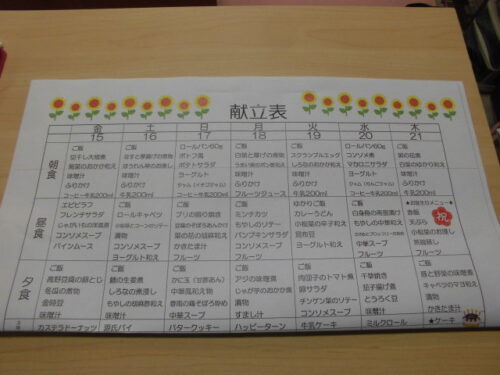 献立表
金 土 日 月 火 水 木
15 16 17 18 19 20 21
朝食
ご飯
豆干し大根煮
味噌汁
ふりかけ
コーヒー牛乳200ml
ご飯
味噌汁
ふりかけ
コーヒー牛乳200ml
ロールパン60g
ポトフ風
ポテトサラダ
ヨーグルト
牛乳200ml
ご飯
味噌汁
ふりかけ
フルーツジュース
ご飯
スクランブルエッグ
味噌汁
ふりかけ
牛乳200ml
ロールパン60g
コンソメ煮
マカロニサラダ
ヨーグルト
コーヒー牛乳200ml
ご飯
味噌汁
ふりかけ
牛乳200ml
昼食
ご飯
エビピラフ
フレンチサラダ
コンソメスープ
パインムース
ご飯
ロールキャベツ
漬物
コンソメスープ
ヨーグルト和え
ご飯
ブリの照り焼き
かきたま汁
フルーツ
ご飯
ミンチカツ
もやしのソテー
パンプキンサラダ
コンソメスープ
フルーツ
ご飯
ゆかり和え
カレーうどん
小松菜の辛子和え
ヨーグルト和え
ご飯
白身魚の南蛮漬け
もやしの中華和え
中華スープ
フルーツ
★お誕生日メニュー★
赤飯
天ぷら
祝
小松菜の煮浸し
茶碗蒸し
フルーツ
夕食
ご飯
高野豆腐の卵とじ
冬瓜の煮物
金時豆
味噌汁
カステラドーナツ
ご飯
鯖の生姜煮
しろなの煮浸し
もやしの胡麻酢和え
味噌汁
源氏パイ
ご飯
かに玉（甘酢あん）
中華風和え物
春雨の鶏そぼろ炒め
中華スープ
バタークッキー
ご飯
アジの味噌煮
じゃが芋のおかか煮
漬物
すまし汁
ハッピーターン
ご飯
肉団子のトマト煮
卵サラダ
チンゲン菜のソテー
コンソメスープ
牛乳ケーキ
ご飯
千草焼き
茄子揚げ煮
とうろく豆
味噌汁
ミルクロール
ご飯
豚と野菜の味噌煮
キャベツのマヨ和え
漬物
かきたま汁
★ケーキ